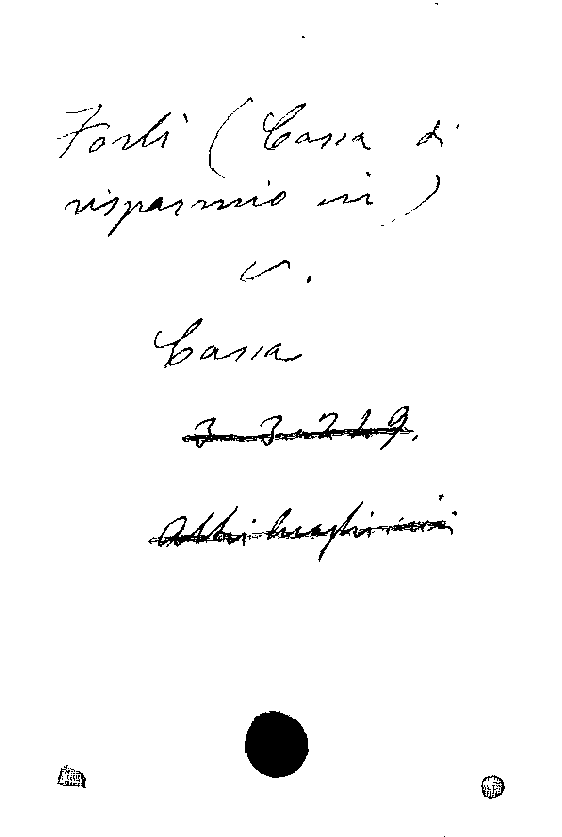 Forlì (Cassa di
risparmio in)
v.
Cassa
3 3 219.